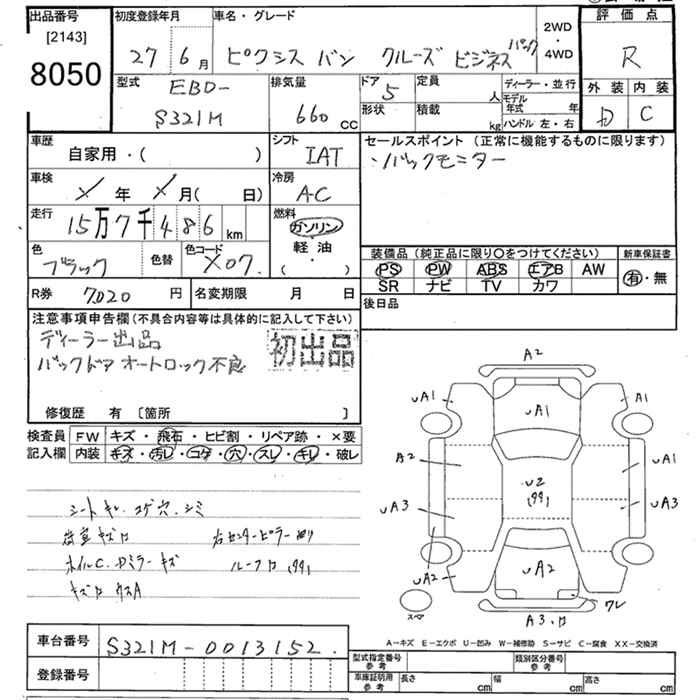 出品番号 初度登録年月 車名・グレード 評価点
[2143]
8050
27 6月 ピクシス バン クルーズ ビジネスパック 2WD・4WD R
型式 EBD- S321M 排気量 660 cc ドア 5 定員 人 ディーラー・並行 外装 内装
形状 積載 kg モデル年式 年 D C
ハンドル 左・右
車歴 自家用・( ) シフト IAT セールスポイント (正常に機能するものに限ります)
バックモニター
車検 年 月( 日) 冷房 AC
走行 15万7千486km 燃料 ガソリン
軽油
( )
色 ブラック 色替 色コード X07. 装備品 (純正品に限り〇をつけてください) 新車保証書
PS PW ABS エアB AW 有・無
SR ナビ TV カワ
R券 7020円 名変期限 月 日 後日品
注意事項申告欄 (不具合内容等は具体的に記入して下さい)
ディーラー出品
初出品
バックドア オートロック不良
修復歴 有 [箇所 ]
検査員 FW キズ・飛石・ヒビ割・リペア跡・×要
記入欄 内装 キズ・汚レ・コゲ・穴・スレ・キレ・破レ
シートキレ.コゲ穴.シミ
荷室キズ 右センターピラー
ホイルC.Dミラーキズ ルーフ
A2
UA1 UA1 A1
A2 U2 UA1
UA3 UA3
UA2 UA2 ワレ
A3.
A-キズ E-エクボ U-凹み W-補修跡 S-サビ C-腐食 XX-交換済
車台番号 S321M-0013152.
登録番号
型式指定番号 参考 類別区分番号 参考
車庫証明用 参考 長さ cm 幅 cm 高さ cm